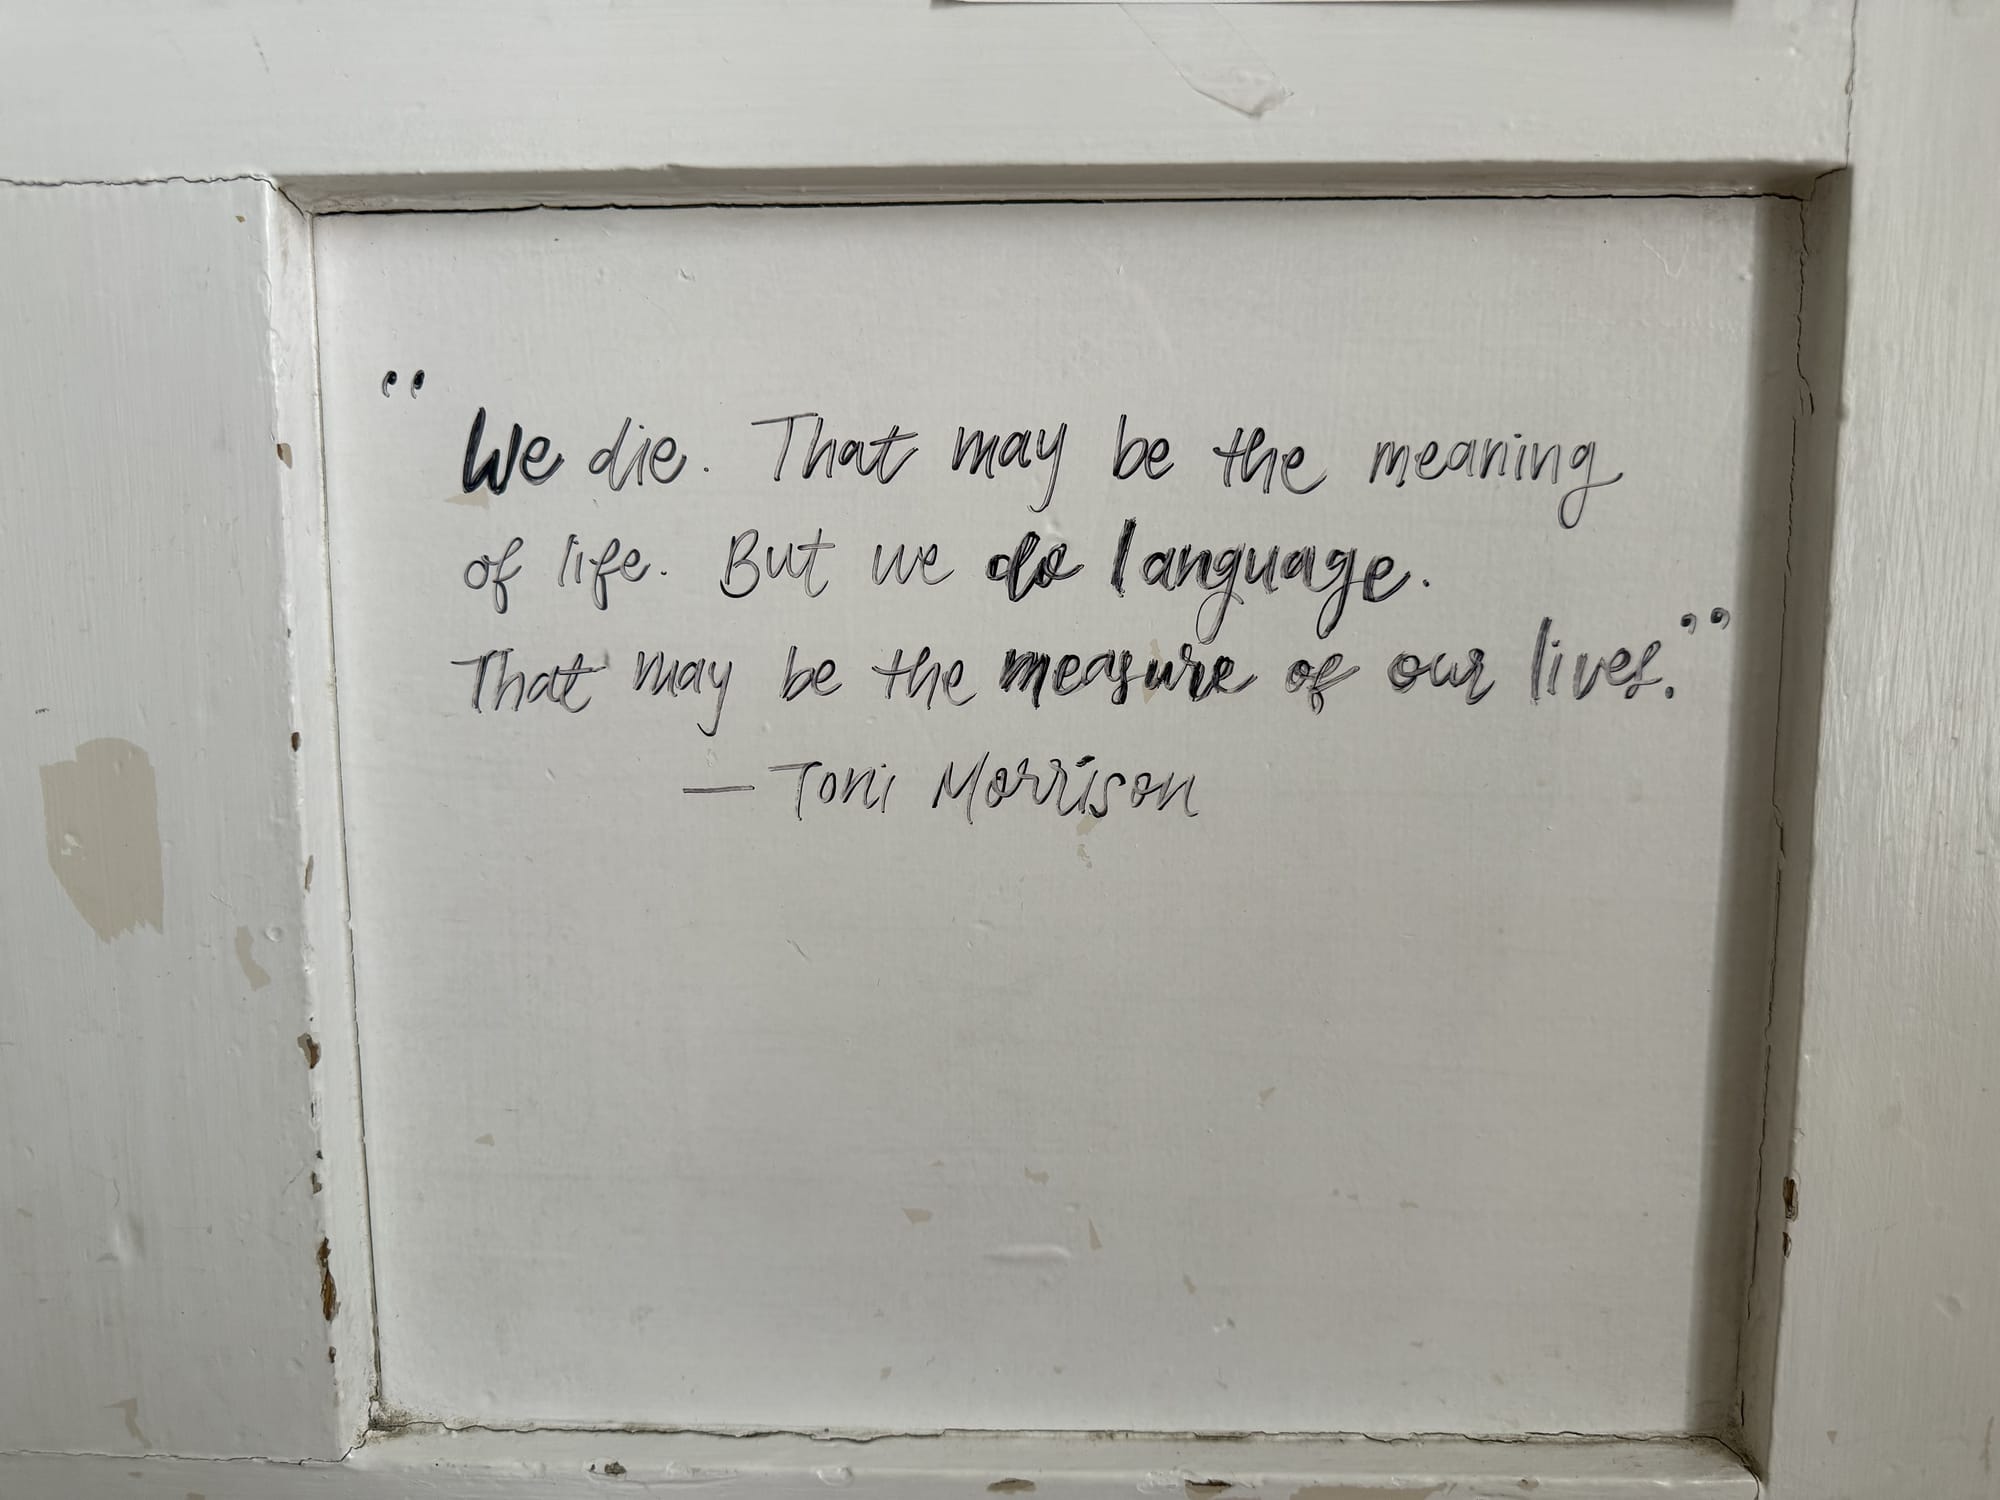 “We die. That may be the meaning
of life. But we do language.
That may be the measure of our lives.”
— Toni Morrison